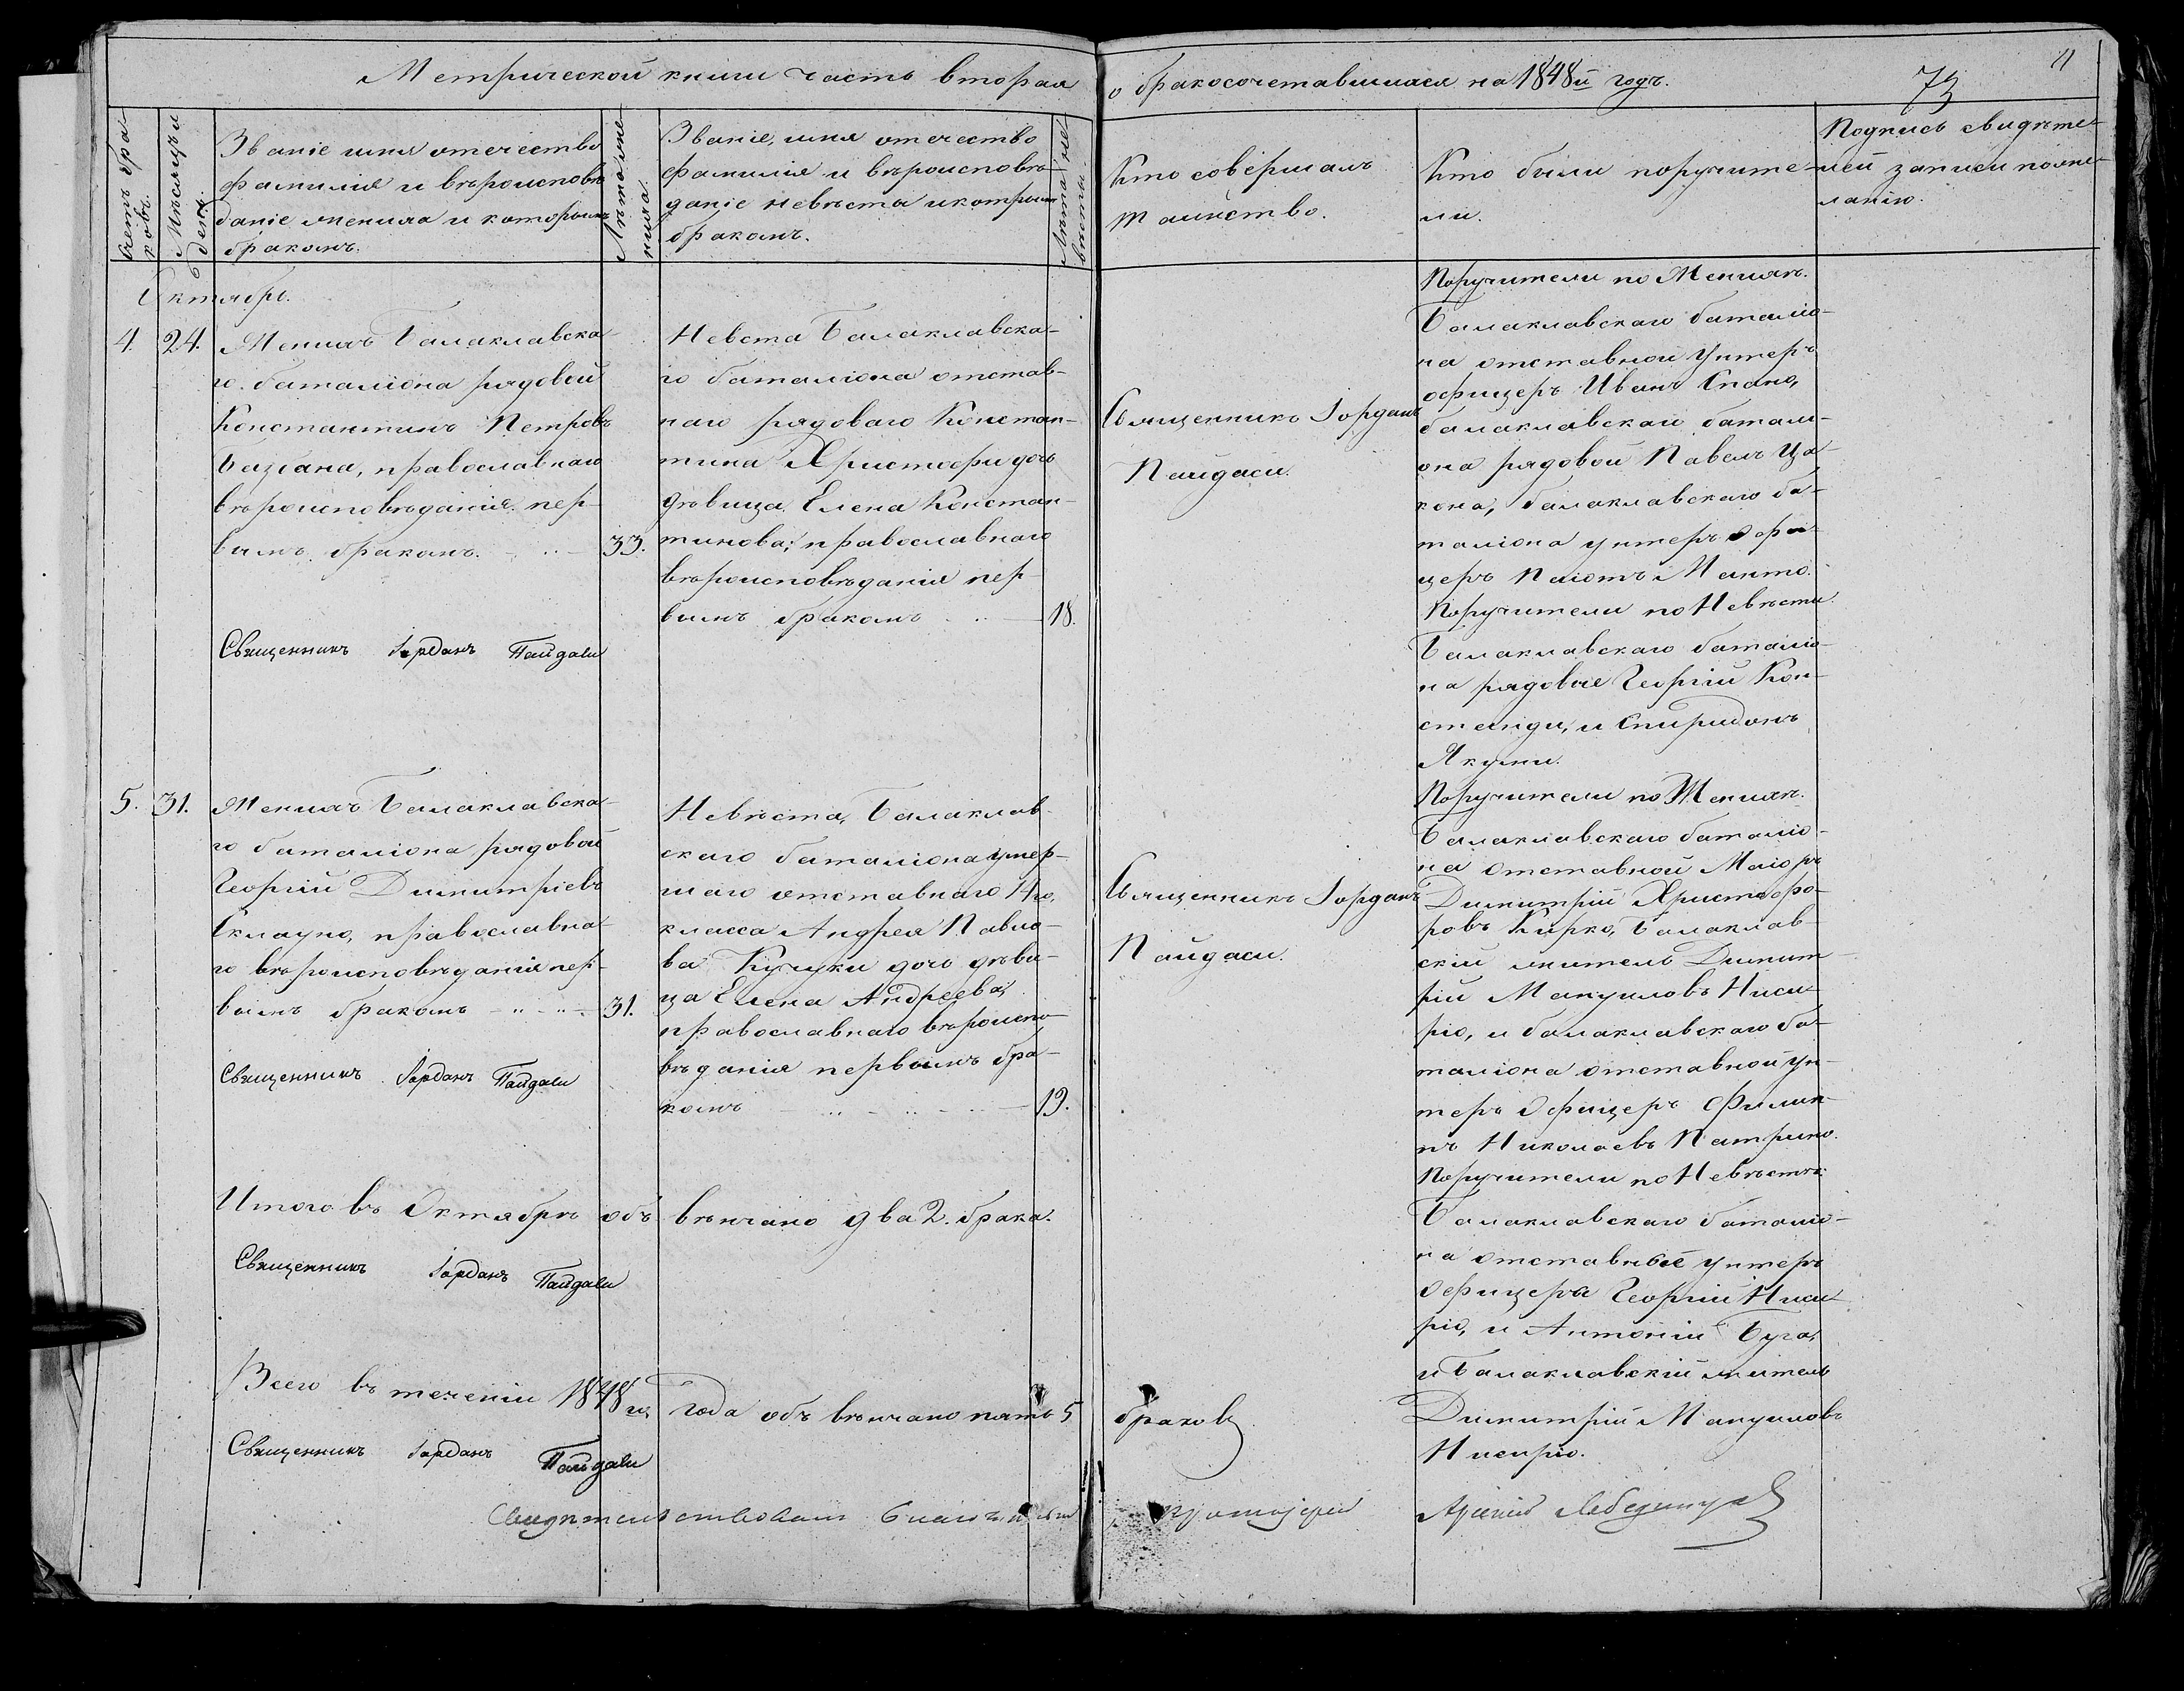 Метрической книги часть вторая о бракосочетавшихся на 1848й годъ.
73
11
Счетъ браковъ.
Мѣсяцъ и день.
Званіе имя отечество
фамилія и вѣроисповѣ
даніе жениха и которымъ
бракомъ.
Лѣта жениха.
Званіе, имя отечество
фамилія и вѣроисповѣ
даніе невѣсты и котрымъ
бракомъ.
Лѣта невѣсты.
Кто совершалъ
таинство.
Кто были поручите-
ли.
Подпись свидѣте-
лей записи по же-
ланію.
Октябрь.
4. 24.
Женихъ Балаклавска-
го баталіона рядовой
Константинъ Петровъ
православнаго
вѣроисповѣданія пер-
вымъ бракомъ. 33.
Священникъ Іорданъ Пайдаси
Невста Балаклавска-
го баталіона отстав-
наго рядоваго Констан-
тина Христофи дочь
дѣвица Елена Констан-
тинова; православнаго
вѣроисповѣданія пер-
вымъ бракомъ 18.
Священникъ Іорданъ
Пайдаси.
Поручители по Женихѣ.
Балаклавскаго баталіо-
на отставной Унтеръ
офицеръ Иванъ Спано,
балаклавскаго батали-
она рядовой Павелъ Ца-
кона, балаклавскаго ба-
таліона унтеръ офи-
церъ Манто.
Поручители по Невѣсти
Балаклавскаго баталіо-
на рядовые Георгій Кон-
станди, и Спиридонъ
Якуми.
5. 31.
Женихъ Балаклавска-
го баталіона рядовой
Георгій Димитріевъ
православна-
го вѣроисповѣданія пер-
вымъ бракомъ 31.
Священникъ Іорданъ Пайдаси
Невѣста, Балаклав-
скаго баталіона умер-
шаго отставнаго 14го,
класса Андрея Павло-
ва Кучуки дочь дѣви-
ца Елена Андреева;
православнаго вѣроиспо-
вѣданія первымъ бра-
комъ 19.
Священникъ Іорданъ
Пайдаси.
Поручители по Женихѣ.
Балаклавскаго баталіо-
на отставной Маіоръ
Димитрій Христофо-
ровъ Кирко, Балаклав-
скій житель Димит-
рій Мануиловъ Ниси-
ріо, и балаклавскаго ба-
таліона отставной ун-
теръ Офицеръ Филип-
пъ Николаевъ Патрино.
Поручители по Невѣстѣ
Балаклавскаго баталіо-
на отставные унтеръ
Офицеры Георгій Ниси-
ріо, и Антоній Буга,
и Балаклавскій житель
Димитрій Мануиловъ
Нисиріо.
Итого въ Октябрѣ объ вѣнчано два 2. брака.
Священникъ Іорданъ Пайдаси
Всего въ теченіи 1848го года объ вѣнчано пять 5 браковъ
Священникъ Іорданъ Пайдаси
Свидѣтельствовалъ Благочинный Протоіерей Арсеній Лебединцевъ